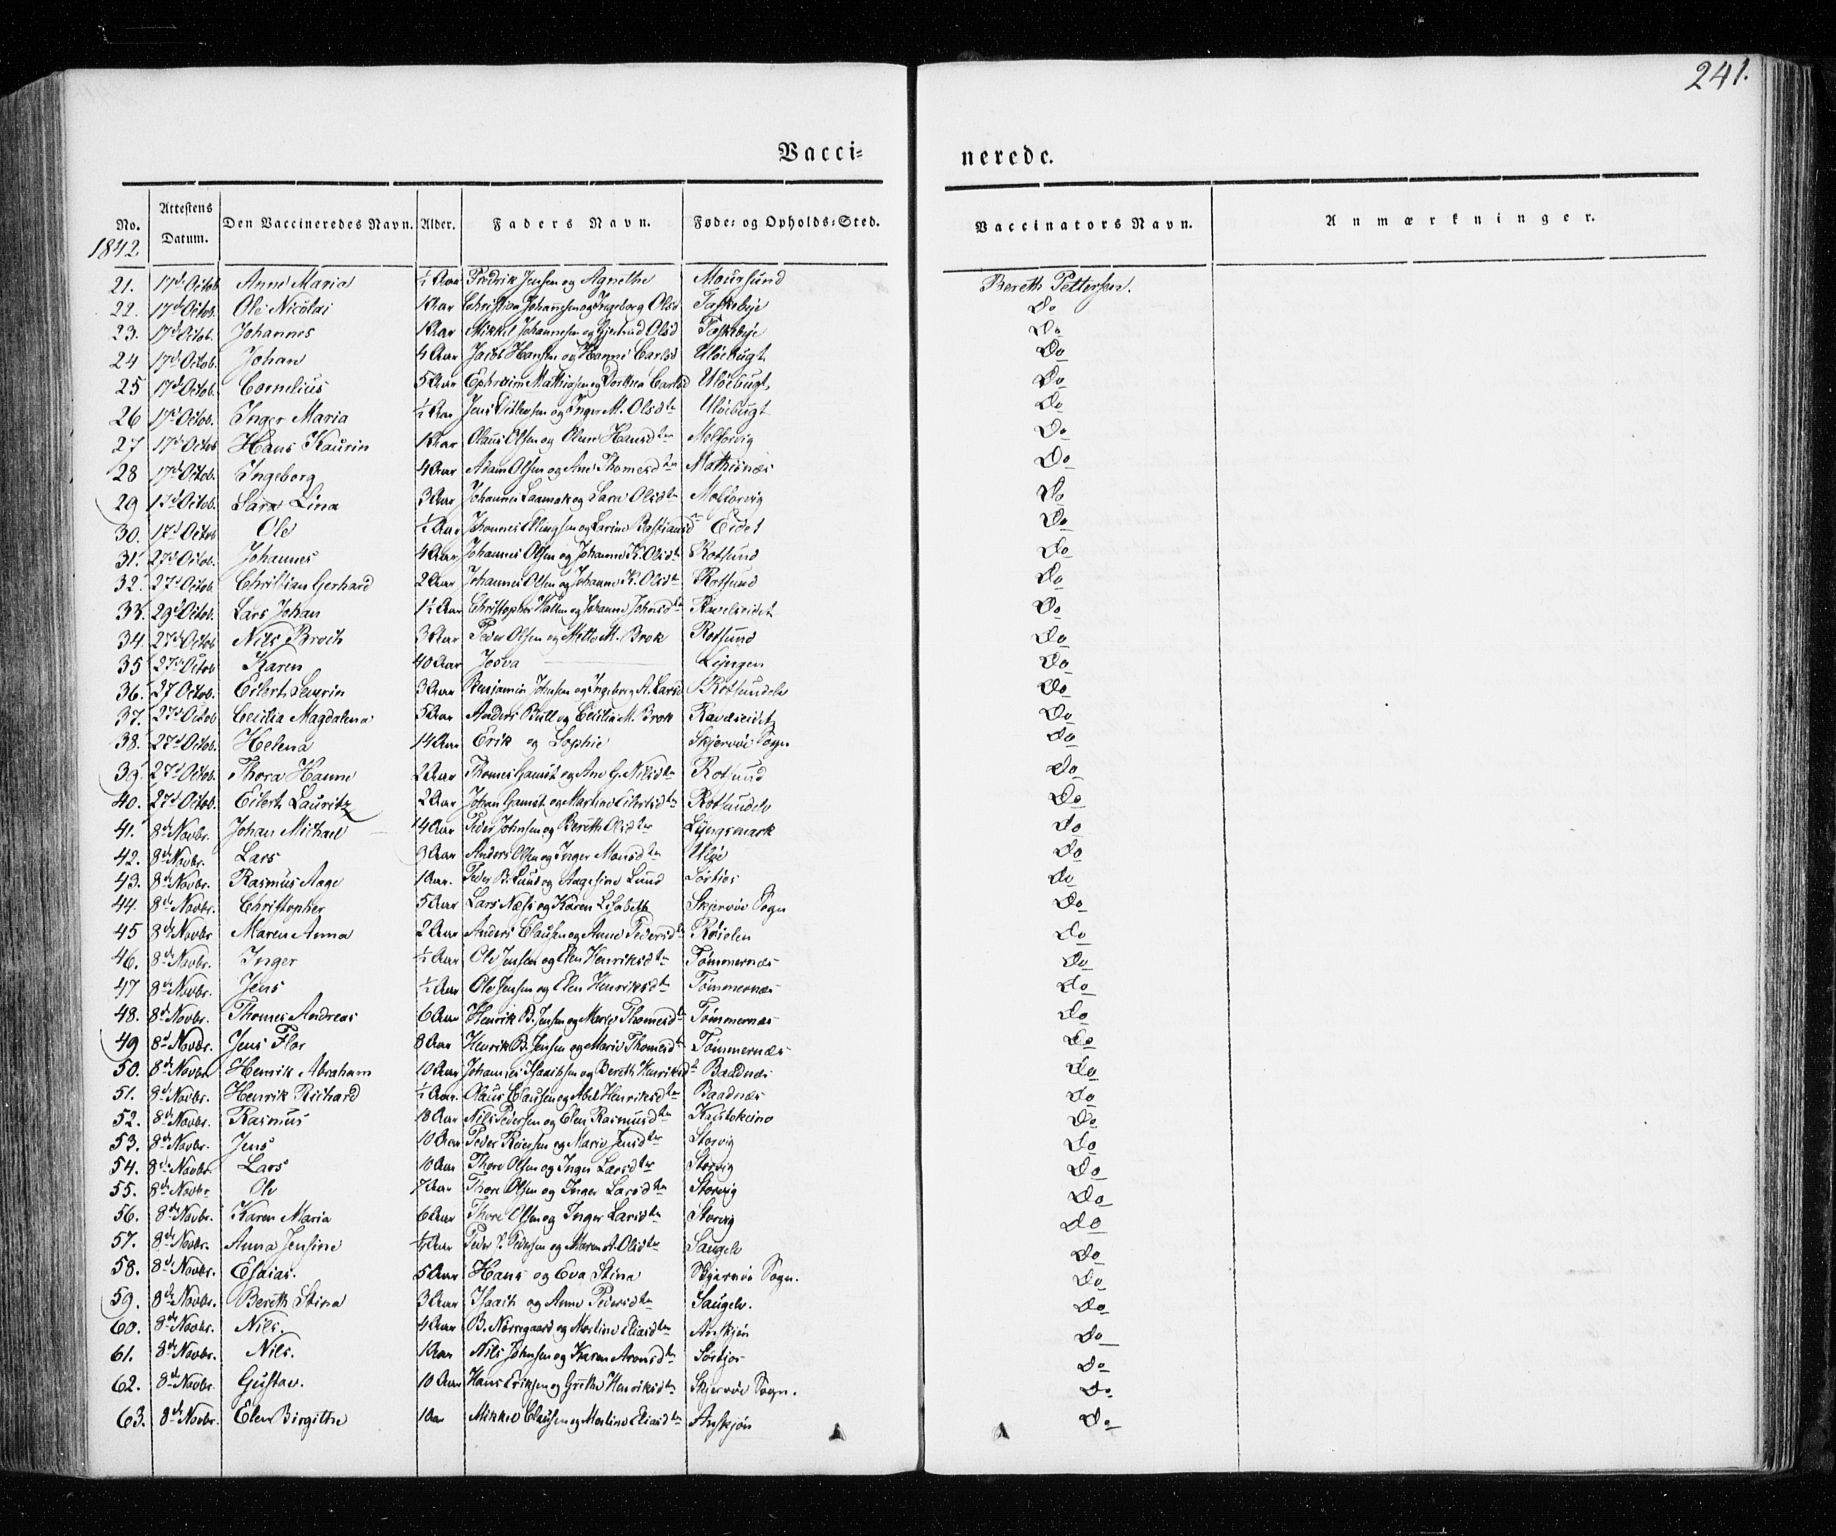 241.
Vacci- nerede.
No. Attestens Datum. Den Vaccineredes Navn. Alder. Faders Navn. Føde- og Opholds-Sted. Vaccinators Navn. Anmærkninger.
1842
21. 17d Octob Anne Maria ½ Aar Fredrik Jensen og Agnethe Maursund Bereth Pettersen.
22. 17d Octob. Ole Nicolai 1 Aar Christian Johannesen og Ingeborg Olsd Taskebye Do
23. 17d Octob. Johannes 1 Aar Mikkel Johannesen og Gjertrud Olsd Taskebye Do
24 17d Octob. Johan 4 Aar Jacob Hansen og Hanne Carlsd Uløebugt Do
25 17d Octob. Cornelius 5 Aar Ephraim Mathiasen og Dorthea Carlsd Uløebugt Do
26 17d Octob. Inger Maria ½ Aar Jens Ditlevsen og Inger M. Olsdtr Uløebugt Do
27 17d Octob Hans Kaurin 1 Aar Olaus Olsen og Hansdtr Molforvig Do
28 17d Octob. Ingeborg 4 Aar Adam Olsen og Ane Thomesdtr Mathisnæs Do
29 17d Octob. Sara Lina 3 Aar Johannes og Sara Olsdtr Molforvig Do
30. 17d Octob Ole ½ Aar Thomes Ellingsen og Larine Bastiansdtr Eidet Do
31. 27d Octob. Johannes 4 Aar Johannes Olsen og Johanne K. Olsdtr Rotsund Do
32. 27d Octob. Christian Gerhard 2 Aar Johannes Olsen og Johanne K. Olsdtr Rotsund Do
33. 29d Octob. Lars Johan 1½ Aar Christopher og Johanne Johnsdtr Ravelseidet Do
34. 27d Octob Nils Broch 3 Aar Peder Olsen og Mette M. Brok Rotsund Do
35 27d Octob Karen 40 Aar Josva Lyngen Do
36. 27 Octob. Eilert Severin 3 Aar Benjamin Johnsen og Ingeborg A. Larsd Rotsundelv Do
37. 27d Octob Cecilia Magdalena 5 Aar Anders Bull og Cecilia M. Brok Do
38. 27d Octob. Helena 14 Aar Erik og Sophie Skjervøe Sogn Do
39. 27d Octob. Thora Hanne 2 Aar Thomes Gamst og Ane G. Nilsdtr Rotsund Do
40. 27d Octob. Eilert Lauritz 2 Aar Johan Gamst og Martine Eilertsdtr Rotsundelv Do
41. 8d Novbr. Johan Michael 14 Aar Peder Johnsen og Bereth Olsdtr Lyngsmark Do
42. 8d Novbr. Lars 3 Aar Anders Olsen og Inger Monsdtr Uløe Do
43. 8d Novbr. Rasmus Aage 1 Aar. Peder B. Lund og Aagesine Lund Sørkjos Do
44. 8d Novbr. Christopher 5 Aar Lars Næss og Karen Lisabeth Skjervøe Sogn Do
45 8d Novbr Maren Anna 2 Aar Anders Clausen og Anne Pedersdtr Røielen Do
46. 8d Novbr. Inger ½ Aar Ole Jensen og Elen Henriksdtr Tømmernæs Do
47 8d Novbr. Jens ½ Aar Ole Jensen og Elen Henriksdtr Tømmernæs Do
48. 8d Novbr. Thomes Andreas 6 Aar Henrik B. Jensen og Marie Thomesdtr Tømmernæs Do
49 8d Novbr. Jens Flor 8 Aar Henrik B. Jensen og Marie Thomesdtr Tømmernæs Do
50. 8d Novbr Henrik Abraham 10 Aar Johannes Isaachsen og Bereth Henriksdtr Baadnæs Do
51. 8d Novbr. Henrik Richard ½ Aar. Olaus Clausen og Abel Henriksdtr Baadnæs Do
52. 8d Novbr. Rasmus 18 Aar Nils Pedersen og Elen Rasmusdtr Kautokeino Do
53. 8d Novbr. Jens 10 Aar Peder og Marie Jensdtr Storvig Do
54. 8d Novbr. Lars 10 Aar Thore Olsen og Inger Larsdtr Storvig Do
55. 8d Novbr Ole 7 Aar Thore Olsen og Inger Larsdtr Storvig Do
56. 8d Novbr. Karen Maria 6 Aar Thore Olsen og Inger Larsdtr Storvig Do
57. 8d Novbr. Anna Jensine Aar Peder Pedersen og Maren A. Olsdtr Saugelv Do
58. 8d Novbr. Esaias. 5 Aar Hans og Eva Stina Skjervøe Sogn. Do
59. 8d Novbr. Bereth Stina 3 Aar Isaach og Anne Pedersdtr Saugelv. Do
60. 8d Novbr. Nils. 4 Aar B. Norregaard og Merline Eliasdtr Arskjøn Do
61. 8d Novbr. Nils. 1 Aar Nils Johnsen og Karen Aronsdtr Sørkjos Do
62. 8d Novbr. Gustav. 10 Aar Hans Eriksen og Grethe Henriksdtr Skjervøe Sogn. Do
63. 8d Novbr. Elen Birgithe 1 Aar Mikkel Clausen og Merline Eliasdtr Arskjøn Do